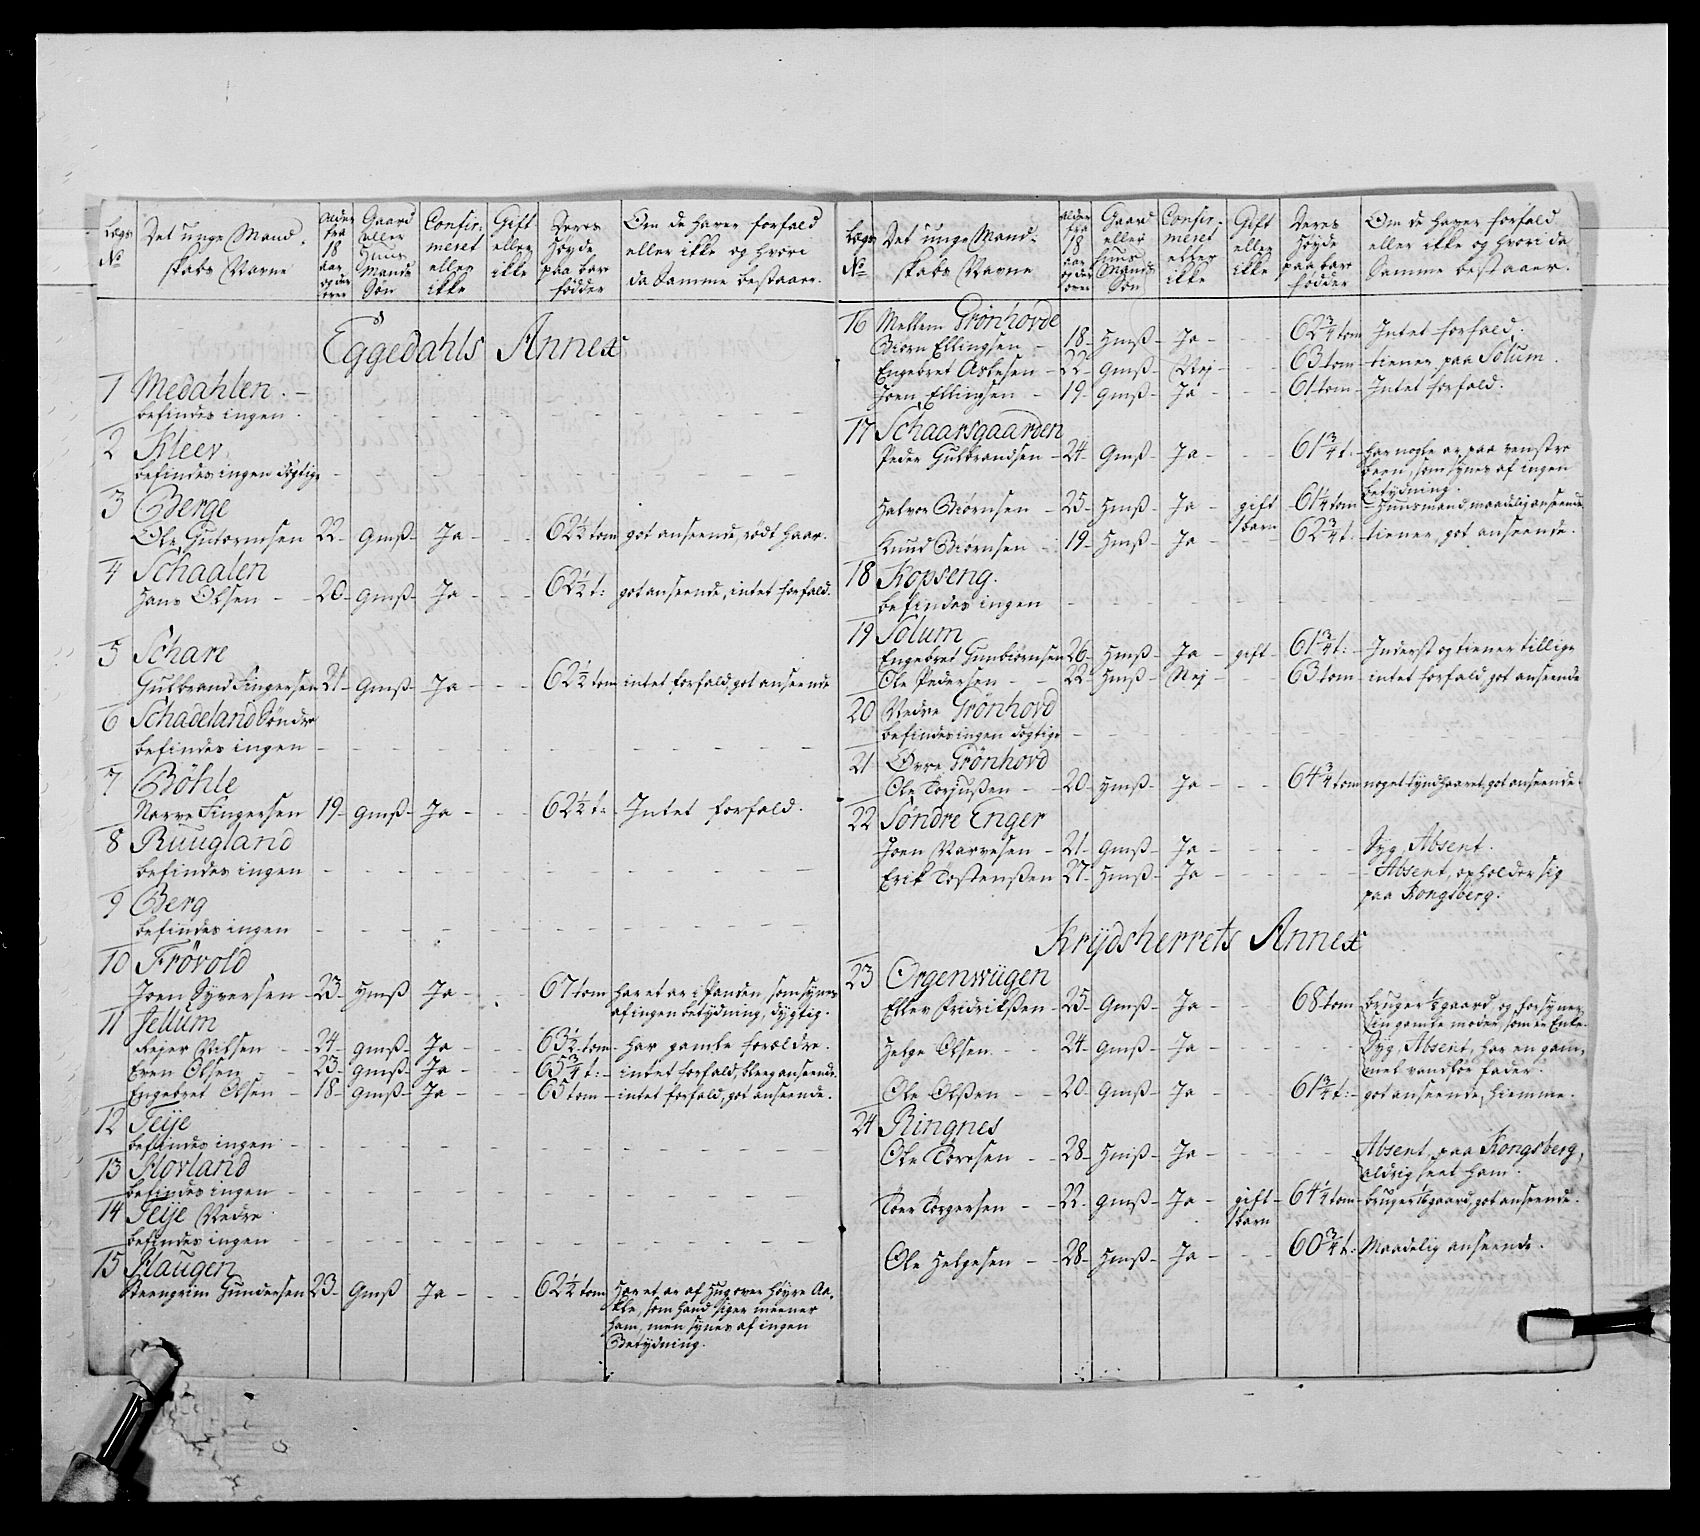 Lægs No | Det unge Mandskabs Navne | Alder fra 18 aar og der over | Gaard eller Huus Mands Søn | Confirmeret eller ikke | Gift eller ikke | Deres Høyde paa bar fødder | Om de haver forfald eller ikke og hvori da Samme bestaaer.
Eggedahls Annex
1 Medahlen. -
befindes ingen.
2 Kleev.
befindes ingen dygtige
3 Berge
Ole Gutormsen 22 - Gmß - Ja - 62 1/2 tom got anseende, rødt haar.
4 Schaalen
Hans Olsen - 20 - gmß - Ja - 62 1/2 t: got anseende, intet forfald.
5 Schare
Gulbrand Fingersen 21 - Gmß - Ja - 62 1/2 tom intet forfald, got anseende
6 Schadeland Søndre
befindes ingen
7 Böhle
Narve Fingersen 19 - gmß - Ja - 62 1/2 t: Intet forfald.
8 Ruugland
befindes ingen
9 Berg
befindes ingen
10 Frövold
Joen Syversen - 23 - Hmß Ja - 67 tom har et ar i Panden, som synes
af ingen betydning, dygtig.
11 Jellum
Rejer Nilsen - 24 - gmß - Ja - 63 1/2 tom - har gamle forældre.
Even Olsen - 23 - gmß - Ja - 65 3/4 t: - intet forfald, bleeg anseende.
Engebret Olsen - 18 - Gmß - Ja - 65 tom - intet forfald, got anseende.
12 Teije
befindes ingen
13 Hovland
befindes ingen
14 Teije Nedre
befindes ingen
15 Haugen
Steengrim Gundersen 23 - Gmß Ja - 62 1/2 tom Har et ar af Hug over høyre Ankle, som hand siger meener
ham, men synes af ingen
Betydning.
Lægs No | Det unge Mandskabs Navne | alder fra 18 aar og der over | Gaard eller Huus Mands Søn | Confirmeret eller ikke | Gift eller ikke | Deres Høyde paa bar fødder | Om de haver forfald eller ikke og hvori da Samme bestaaer.
16 Mellem Grönhovd
Biørn Ellingsen - 18 - Hmß - Ja - 62 3/4 tom Intet forfald.
Engebret Aslesen - 22 - Gmß - Nej - 63 tom - tiener paa Solum.
Joen Ellingsen - 19 - Gmß - Ja - 61 tom - Intet forfald.
17 Schaarsgaarden
Peder Gulbrandsen - 24 - Gmß - Ja - 61 3/4 t. har nogle ar paa venstre
been, som synes af ingen
betydning.
Halvor Biørnsen - 25 - Hmß - Ja - gift 1 barn 61 1/4 tom - Huusmand, maadelig anseende
Knud Biørnsen - 19 - Hmß - Ja - 62 3/4 t. - tiener, got anseende.
18 Kopseng.
befindes ingen
19 Solum
Engebret Gunbiørnsen 26 - Hmß - Ja - gift - 61 3/4 t: - Inderst og tiener tillige
Ole Pedersen - 22 - Hmß - Nej - 63 tom - intet forfald, got anseende
20 Nedre Grönhovd
befindes ingen dygtige
21 Øvre Grönhovd
Ole Torjußen - 20 - Hmß - Ja - 64 3/4 tom noget tyndhaaret, got anseende.
22 Søndre Enger
Joen Narvesen - 21 - Gmß - Ja - Syg, Absent.
Erik Tostenßen 27 - Hmß - Ja - Absent, opholder sig
paa Kongsberg.
Krydsherrets Annex
23 Orgenwiigen
Ellev Fridrikßen - 25 - Gmß - Ja - 68 tom bruger 1/2 gaard, og forsyner
sin gamle moder, som er Enke.
Helge Olsen - 24 - Gmß - Ja - Syg, Absent, har en gammel vanfør fader.
Ole Olßen - 20 - Gmß - Ja - 61 3/4 t: - got anseende, hiemme.
24 Ringnes
Ole Toresen - 28 - Hmß - Ja - Absent, paa Kongsberg,
aldrig seet ham.
Tore Torgersen - 22 - Gmß - Ja - gift - 1 barn 64 1/4 tom - bruger 1/2 gaard, got anseende.
Ole Helgesen - 28 - Hmß - Ja - 60 3/4 t: Maadelig anseende.